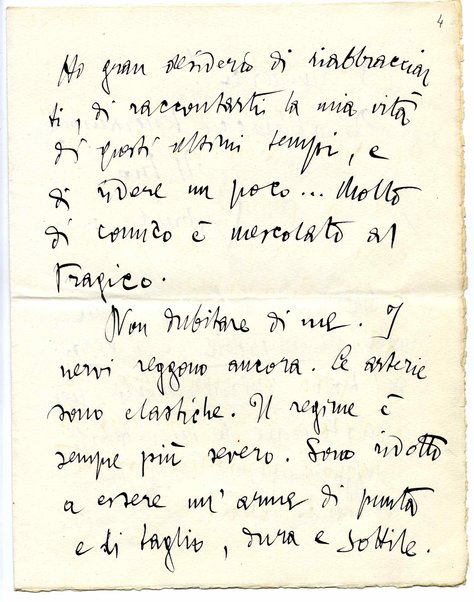 4
Ho gran desiderio di riabbracciar
ti, di raccontarti la mia vita
di questi ultimi tempi, e
di ridere un poco... Molto
di comico è mescolato al
Tragico.
Non dubitare di me. I
nervi reggono ancora. Le arterie
sono elastiche. Il regime è
sempre più severo. Sono ridotto
a essere un' arma di punta
e di taglio, dura e sottile.